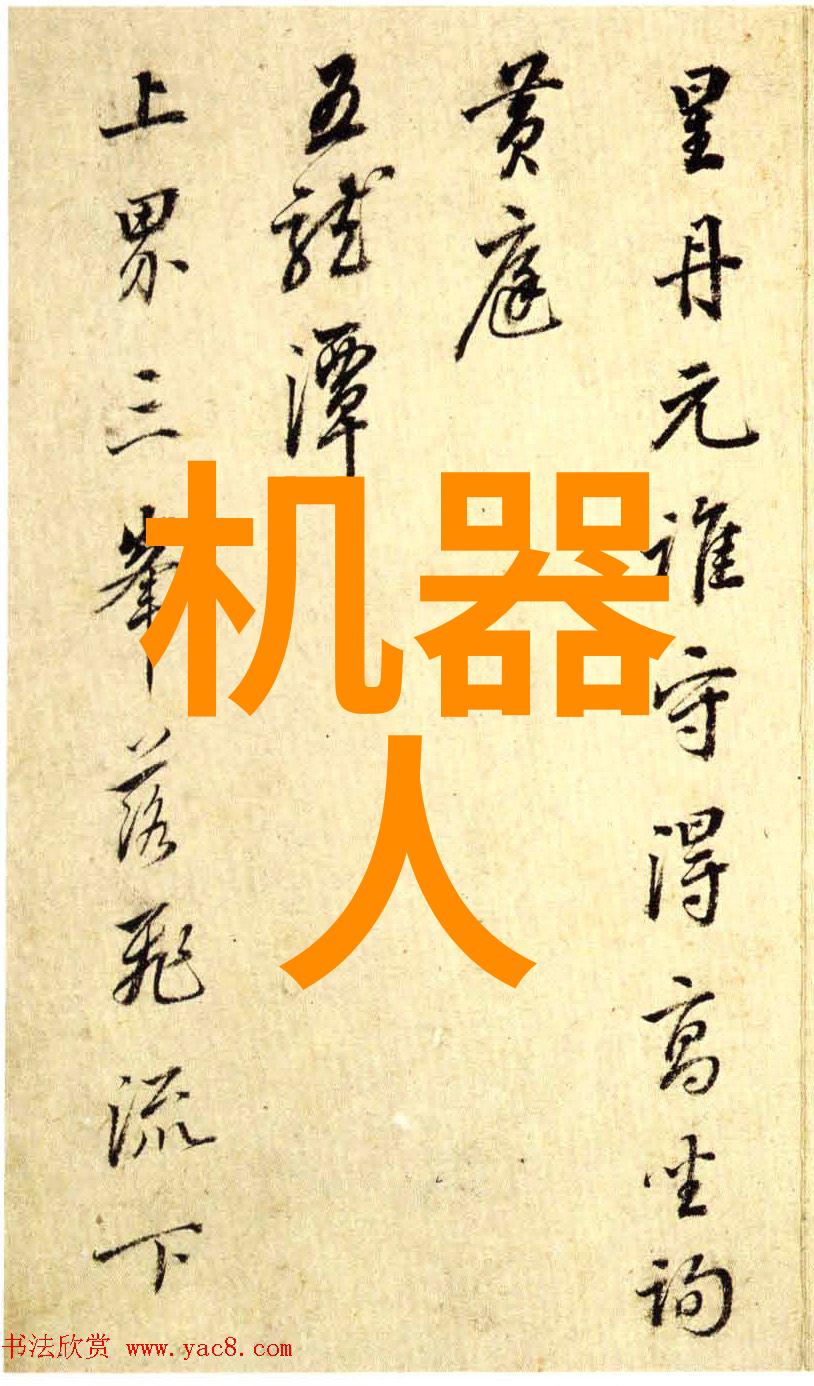 星丹元谁守得高坐询
黄庭
五龍潭
上界三峯落飛流下
机器
人
书法欣赏 www.yac8.com